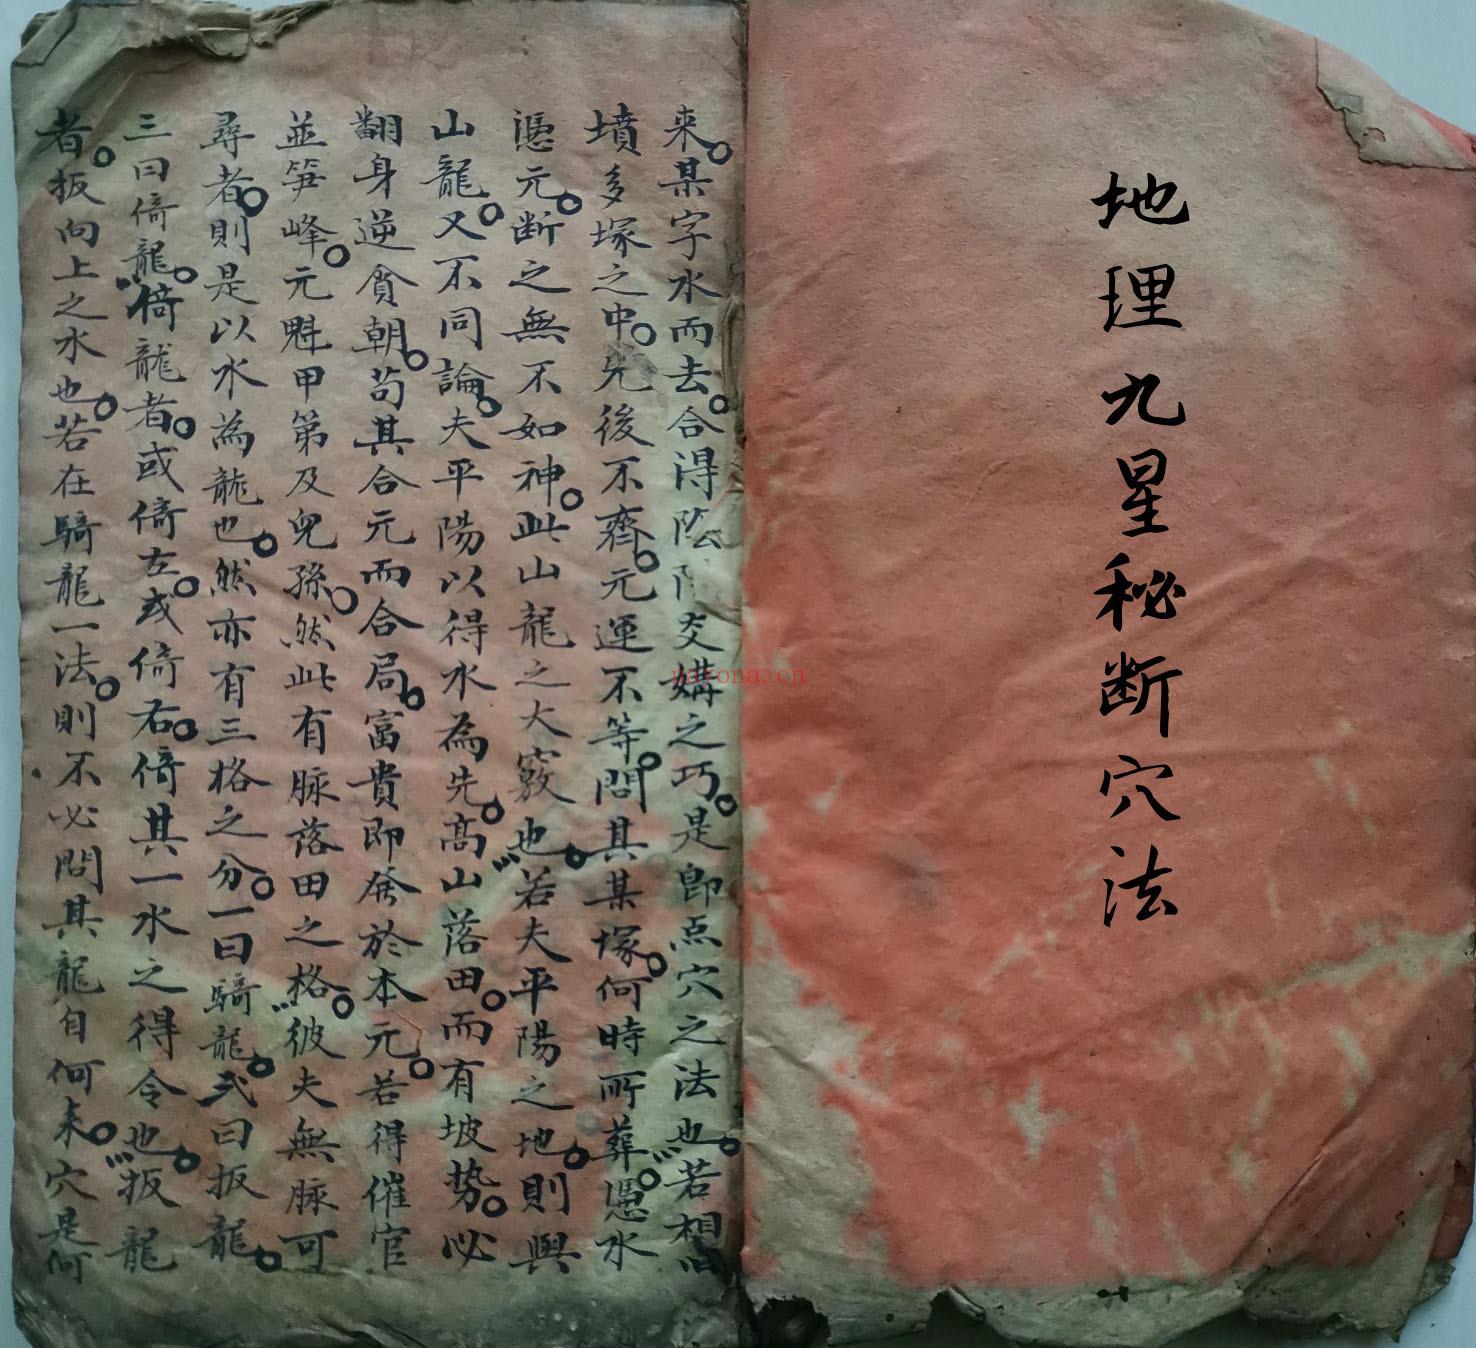 地理九星秘断穴法
来某字水而去合得陰陽交媾之巧是即点穴之法也若相
墳多塚之中先後不齊元運不等問其某塚何時所葬憑水
憑元断之無不如神此山龍之大竅也若夫平陽之地則與
山龍又不同論夫平陽以得水為先高山落田而有坡势必
翻身逆貪朝苟其合元而合局富貴即發於本元若得催官
並笋峰元魁甲第及兒孫然此有脉落田之格彼夫無脉可
尋者則是以水為龍也然亦有三格之分一曰騎龍弍曰扳龍
三曰倚龍倚龍者或倚左或倚右倚其一水之得令也扳龍
者扳向上之水也若在騎龍一法則不必問其龍自何来穴是何
yayona.cn